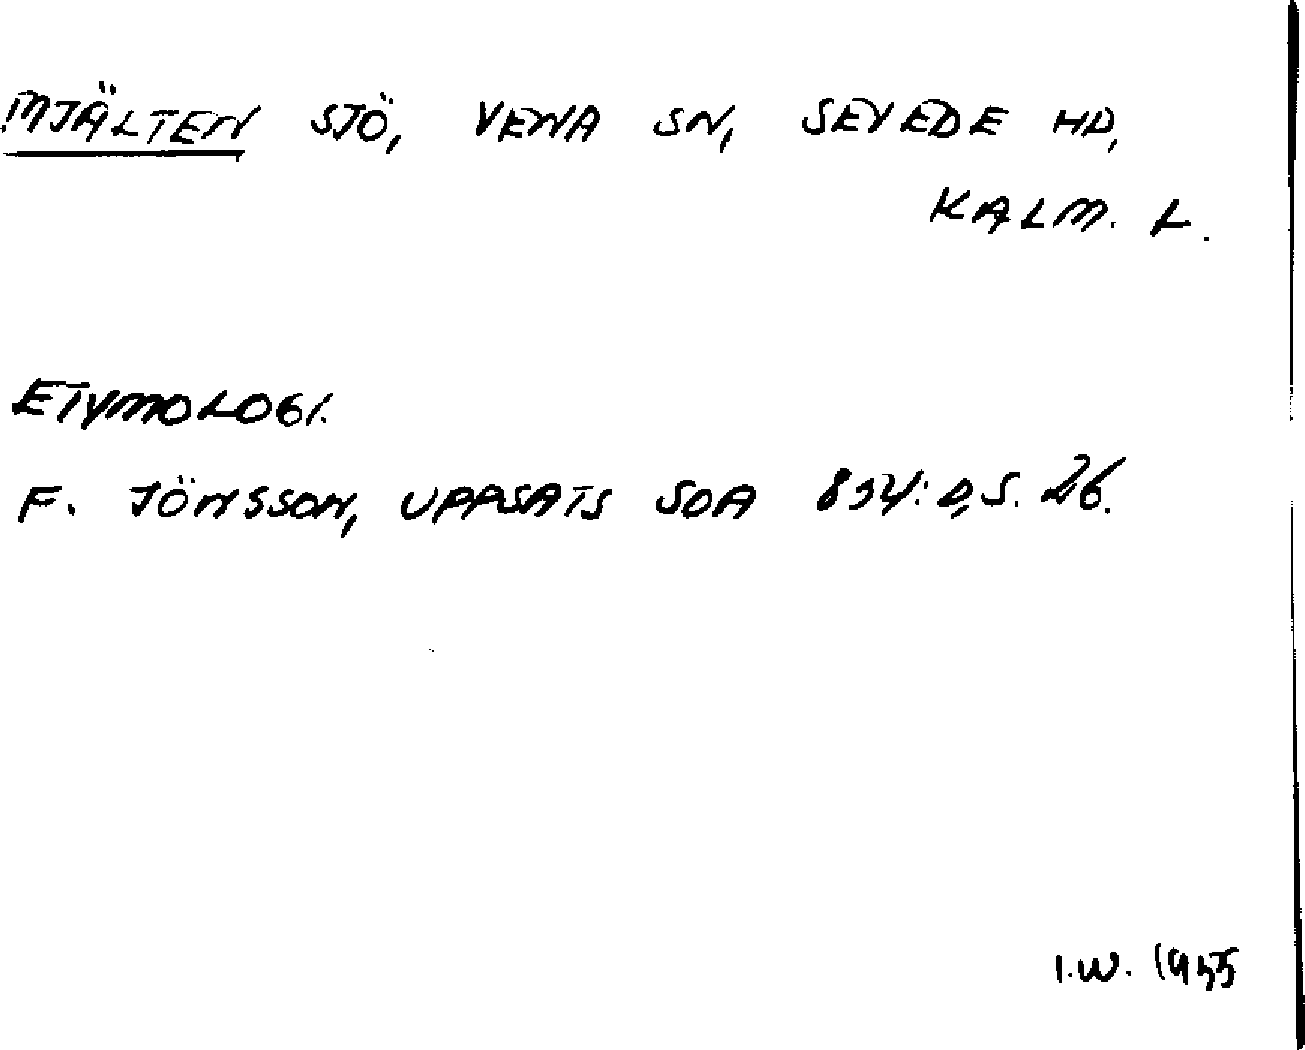 MJÄLTEN SJÖ, VENA SN, SEVEDE HD,
KALM. L.
ETYMOLOGI.
F. JÖNSSON, UPPSATS SOA 834:D, S. 26.
I.W. 1955